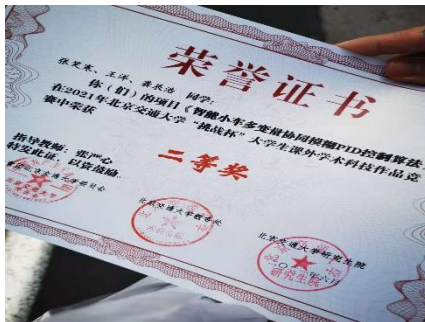 荣誉证书
张芝寒、王洋、龚辰浩 同学：
你（们）的项目《智能小车多变量协同模糊PID控制算法》
在2021年北京交通大学“挑战杯”大学生课外学术科技作品竞
赛中荣获
二等奖
指导教师：张严心
特发此证，以资鼓励。
北京交通大学教务处
北京交通大学研究生院
二〇二一年六月
研究生院